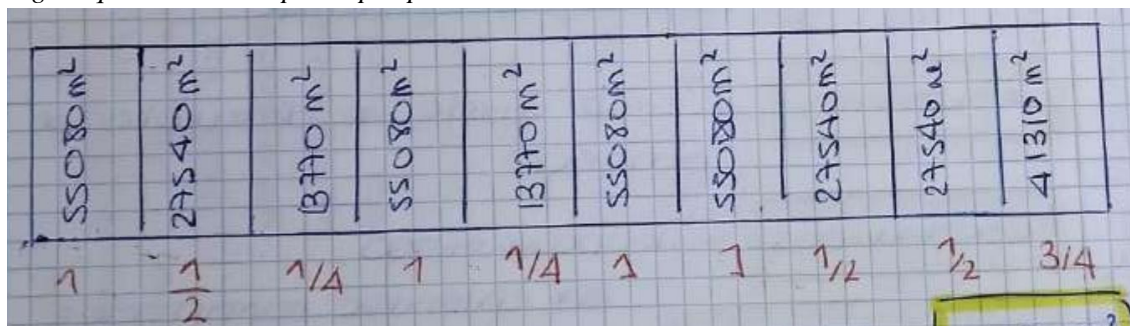 55080m²
27540m²
13770m²
55080m²
13770m²
55080m²
55080m²
27540m²
27540m²
41310m²
1 1/2 1/4 1 1/4 1 1 1/2 1/2 3/4